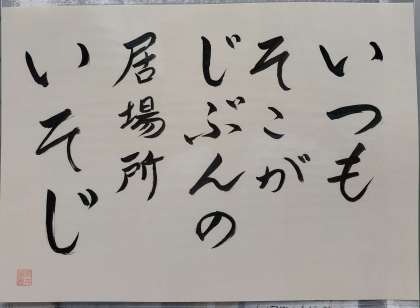 いつも
そこが
じぶんの
居場所
いそじ